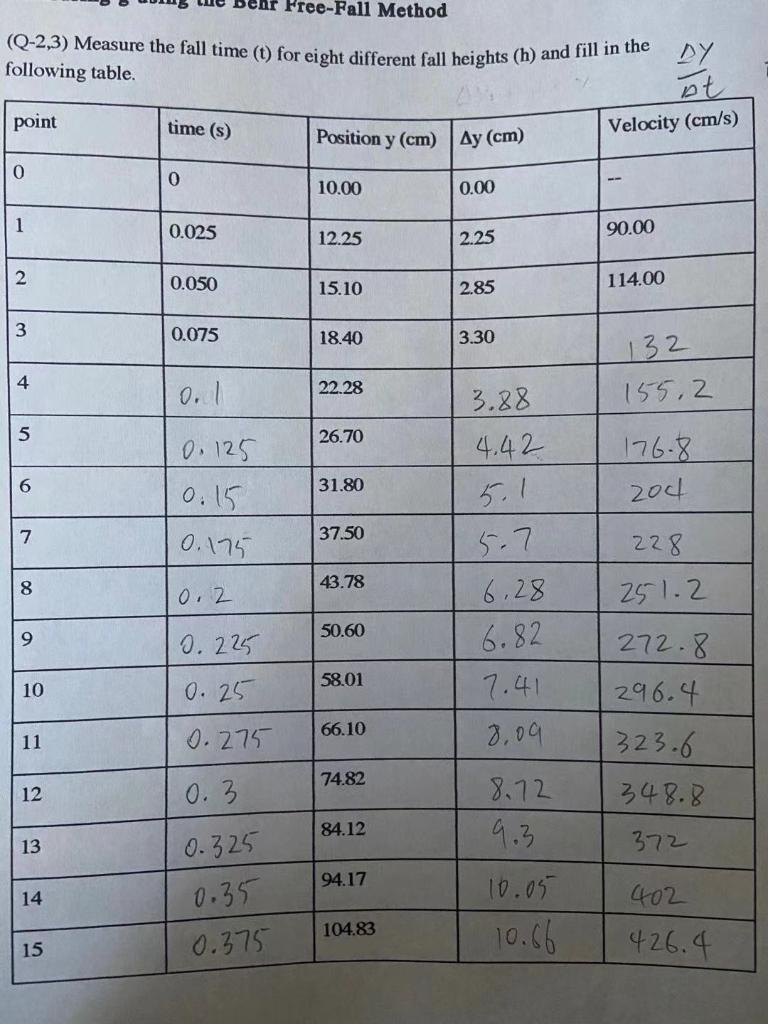 Behr Free-Fall Method
(Q-2,3) Measure the fall time (t) for eight different fall heights (h) and fill in the
following table.
ΔY
Δt
point time (s) Position y (cm) Δy (cm) Velocity (cm/s)
0 0 10.00 0.00 --
1 0.025 12.25 2.25 90.00
2 0.050 15.10 2.85 114.00
3 0.075 18.40 3.30 132
4 0.1 22.28 3.88 155.2
5 0.125 26.70 4.42 176.8
6 0.15 31.80 5.1 204
7 0.175 37.50 5.7 228
8 0.2 43.78 6.28 251.2
9 0.225 50.60 6.82 272.8
10 0.25 58.01 7.41 296.4
11 0.275 66.10 8.09 323.6
12 0.3 74.82 8.72 348.8
13 0.325 84.12 9.3 372
14 0.35 94.17 10.05 402
15 0.375 104.83 10.66 426.4